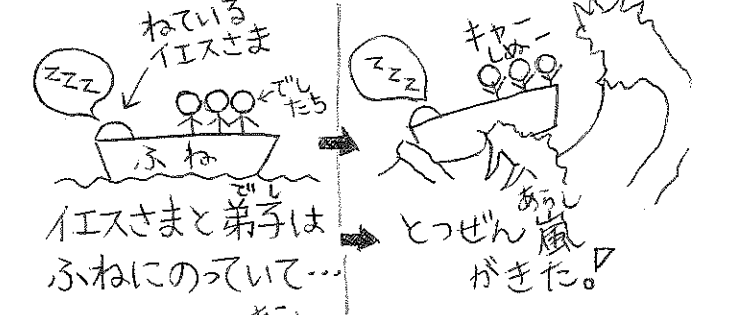 ねている
イエスさま
zzz
でし
たち
ふね
イエスさまと弟子は
でし
ふねにのっていて…
キャー
しぬー
zzz
とつぜん嵐
あらし
がきた。